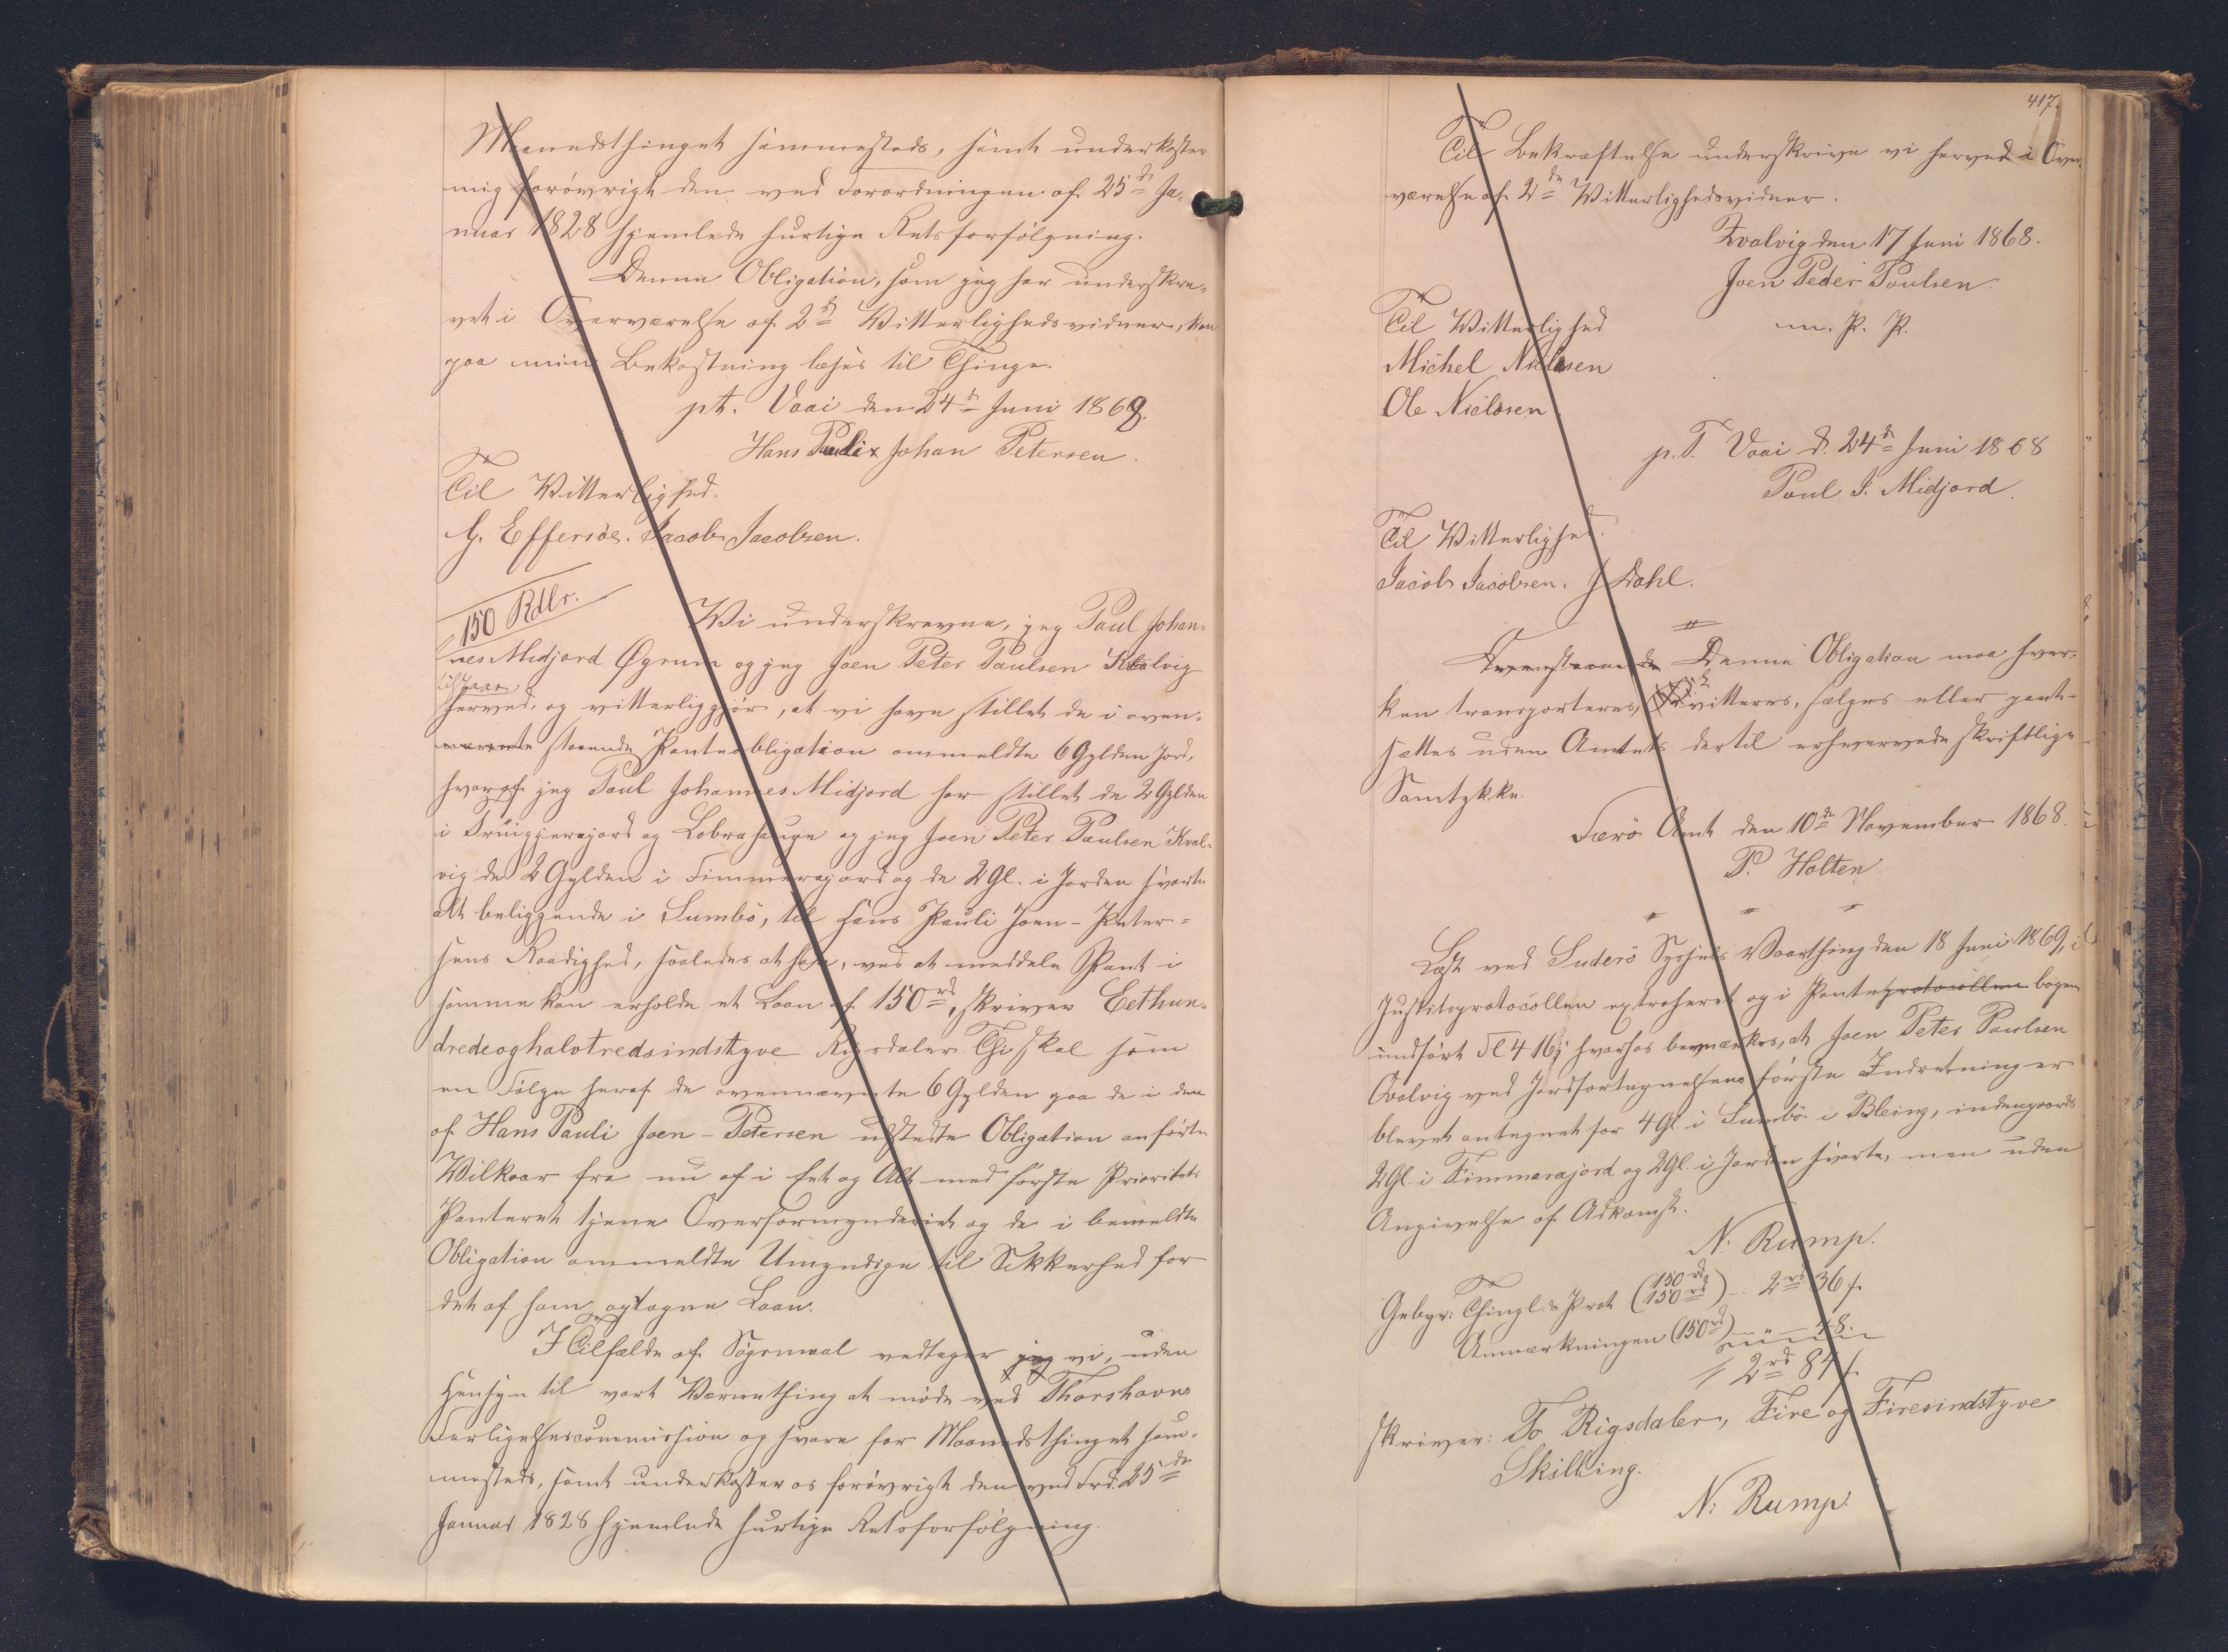 Maanedsthinget sammesteds, samt underkaster
mig forövrigt den ved Forordningen af 25de Ja-
nuar 1828 hjemlede hurtige Retsforfölgning.
Denne Obligation, som jeg har underskre-
vet i Overværelse af 2de Vitterlighedsvidner, kan
paa min Bekostning læses til Thinge.
pt. Vaai den 24de Juni 1868.
Hans Pauli x Johan Petersen.
Til Vitterlighed.
G. Effersöe. Jacob Jacobsen.
150 Rdlr.
Vi underskrevne, jeg Paul Johan-
nes Midjord Øgrum og jeg Joen Peter Paulsen Kvalvig
herved, og vitterliggjör, at vi have stillet de i oven-
staaende Panteobligation ommeldte 6 Gylden Jord,
hvoraf jeg Paul Johannes Midjord har stillet de 2 Gylden
i Drüigjerajord og Lobrahauge og jeg Joen Peter Paulsen Kval-
vig de 2 Gylden i Fimmerajord og de 2 Gl. i Jorden svarte
alt beliggende i Sumbö, til Hans Pauli Joen-Peter-
sens Raadighed, saaledes at han, ved at meddele Pant i
samme kan erholde et Laan af 150rd, skriver Eethun-
dredeoghalvtredsindstyve Rigsdaler. Thi skal som
en Fölge heraf de ovennævnte 6 Gylden paa de i den
af Hans Pauli Joen-Petersen udstedte Obligation anförte
Vilkaar fra nu af i Eet og Alt med förste Prioritets
Panteret tjene Overformynderiet og de i bemeldte
Obligation ommeldte Umyndige til Sikkerhed for
det af ham optagne Laan.
I Tilfælde af Sögsmaal vedtager jeg vi, uden
Hensyn til vort Værnething at möde ved Thorshavns
Forligelsescommission og svare for Maanedsthinget sam-
mesteds, samt underkaster os forövrigt den ved Frd. 25de
Januar 1828 hjemlede hurtige Retsforfölgning.
417.
Til Bekræftelse underskrive vi herved i Over-
værelse af 2de Vitterlighedsvidner.
Kvalvig den 17 Juni 1868.
Joen Peder Poulsen
m. P. P.
Til Vitterlighed
Michel Nielsen
Ole Nielsen.
p.T. Vaai d. 24de Juni 1868
Poul J. Midjord.
Til Vitterlighed.
Jacob Jacobsen. J Dahl.
Ovenstaaende Denne Obligation maa hver-
ken transporteres, qvitteres, sælges eller pant-
sættes uden Amtets dertil erhvervede skriftlige
Samtykke.
Færö Amt den 10de November 1868.
P. Holten
Læst ved Suderö Sysjels Vaarthing den 18 Juni 1869, i
Justitsprotocollen extraheret og i Panteprotocollen bogen
indfört Fl 416; hvorhos bemærkes, at Joen Peter Paulsen
Qvalvig ved Jordfortegnelsens förste Indretning er
blevet antegnet for 4 Gl. i Sumbö i Bleing, indengaards
2 Gl. i Fimmerajord og 2 Gl. i Jorden svarte, men uden
Angivelse af Adkomst.
N. Rump.
Gebyr: Thingl. & Prot (150rd 150rd) - 2rd 36 s.
Anmærkningen (150rd) 48.
2rd 84 s.
skriver: To Rigsdaler, Fire og Firesindstyve
Skilling.
N. Rump.